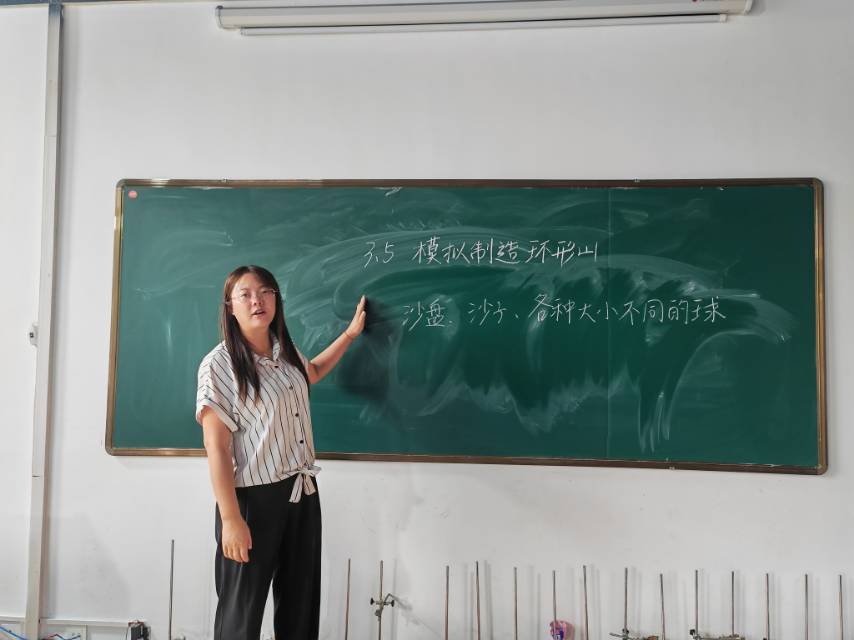 3.5 模拟制造环形山
沙盘、沙子、各种大小不同的球